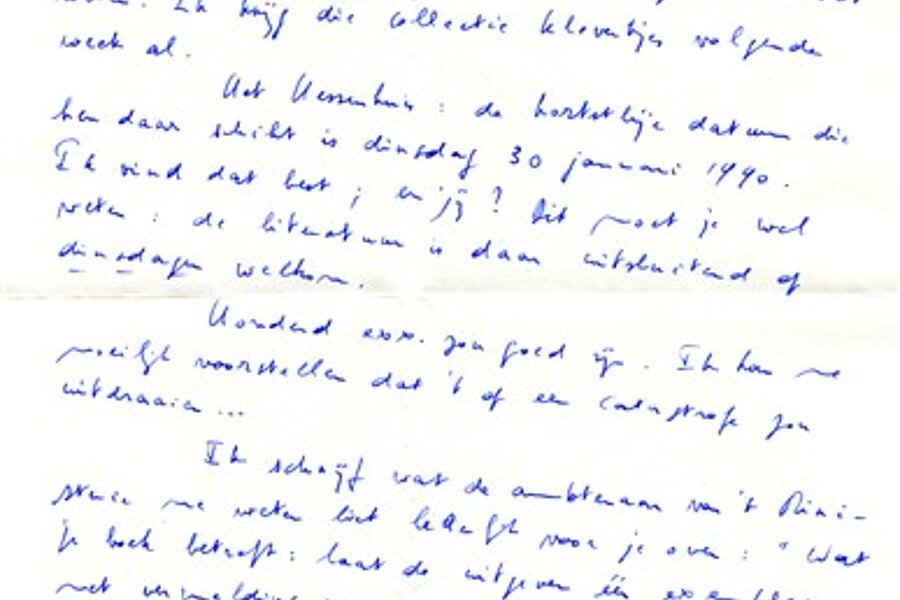 Ik krijg die collectie klavertjes volgende
week al.
Het Hessenhuis : de kostelijke datum die
hen daar schikt is dinsdag 30 januari 1990.
Ik vind dat best ; en jij ? Dit moet je wel
weten : de literatuur is daar uitsluitend op
dinsdagen welkom.
Honderd exx. zou goed zijn. Ik kan me
moeilijk voorstellen dat 't op een catastrofe zou
uitdraaien ...
Ik schrijf wat de ambtenaar van 't Mini-
sterie me weten liet letterlijk voor je over : " Wat
je boek betreft : laat de uitgever één exemplaar
met vermelding